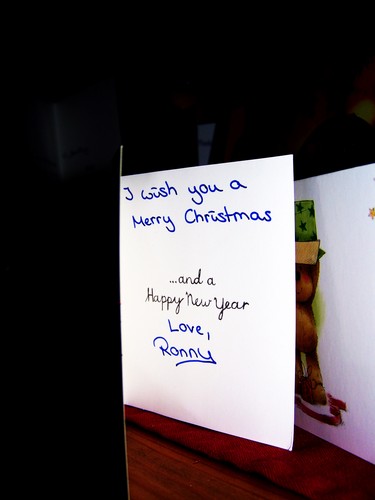 I wish you a
Merry Christmas
...and a
Happy New Year
Love,
Ronny